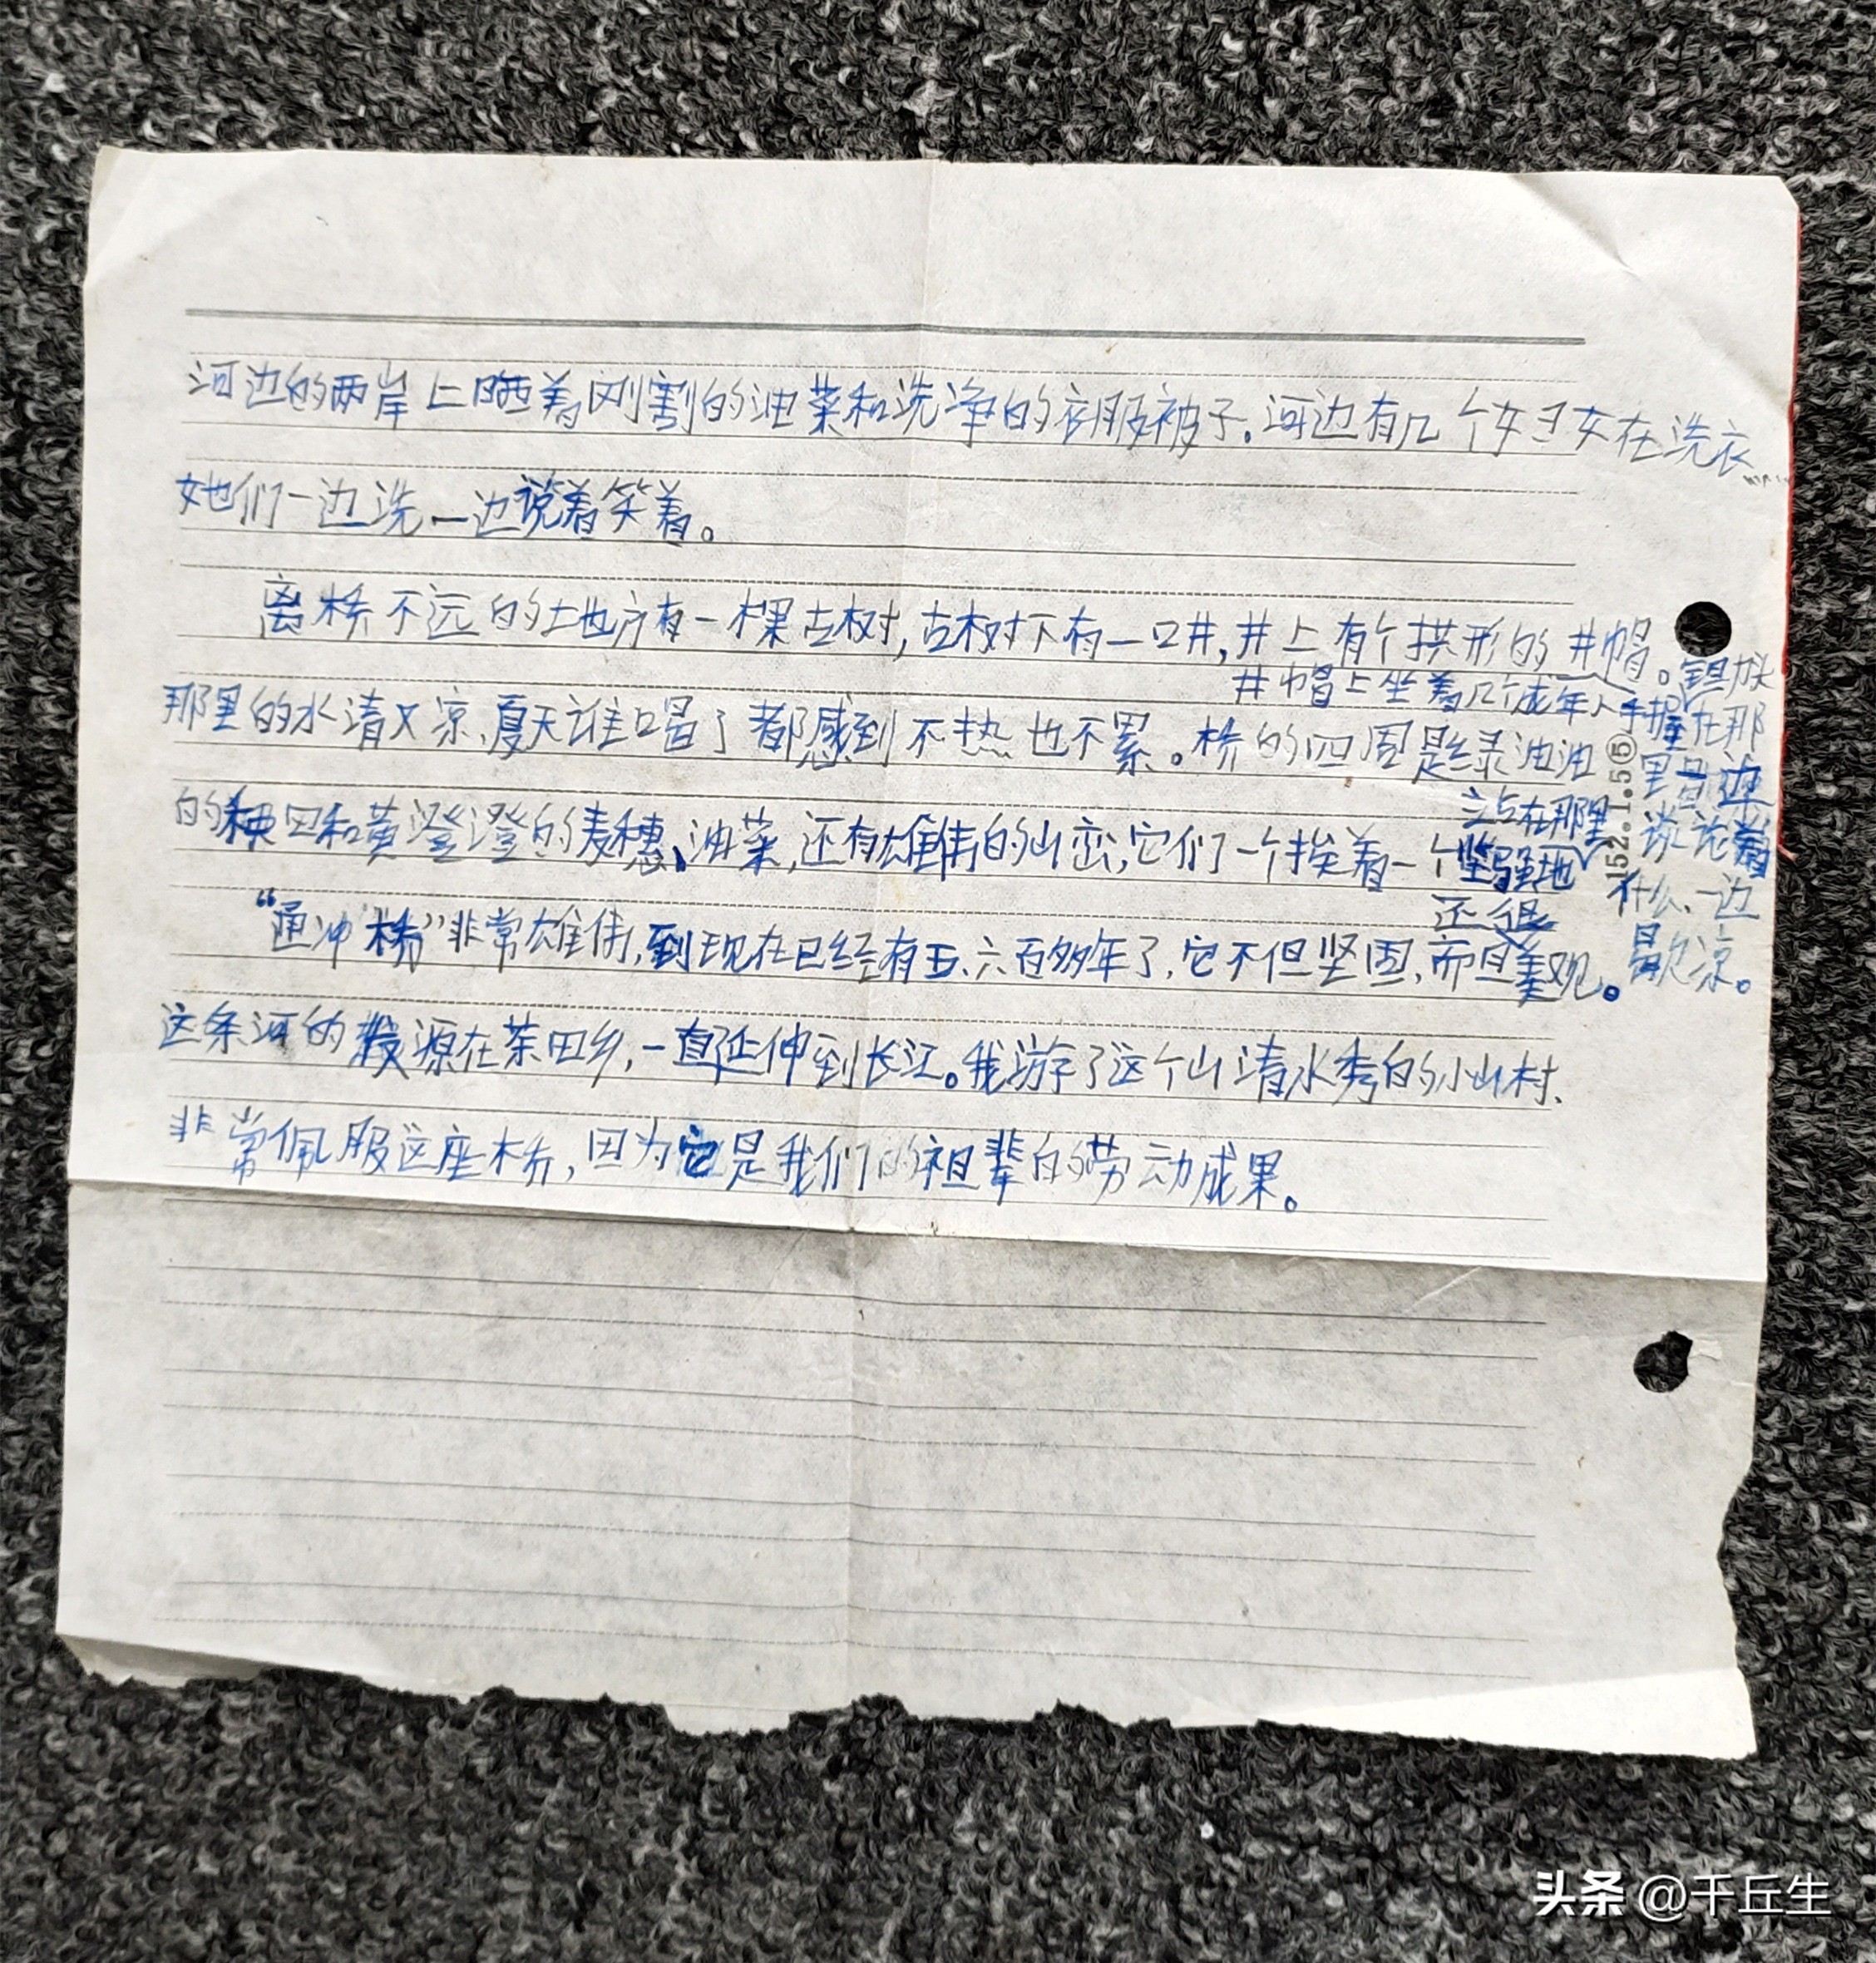 河边的两岸上晒着刚割的油菜和洗净的衣服被子。河边有几个妇女在洗衣……
她们一边洗一边说着笑着。
离桥不远的地方有一棵古树，古树下有一口井，井上有个拱形的井帽。
井帽上坐着几个成年人手握
锄头
在那
里边
谈论着
什么、一边
歇凉。
那里的水清又凉、夏天谁喝了都感到不热也不累。桥的四周是绿油油
的秧田和黄澄澄的麦穗、油菜，还有雄伟的山峦，它们一个挨着一个坚强地
立在那里
“通冲桥”非常雄伟，到现在已经有五、六百多年了，它不但坚固，而且美观。
还很
这条河的发源在茶田乡，一直延伸到长江。我游了这个山清水秀的小山村、
非常佩服这座桥，因为它是我们的祖辈的劳动成果。
152.1.5⑤
头条 @千丘生